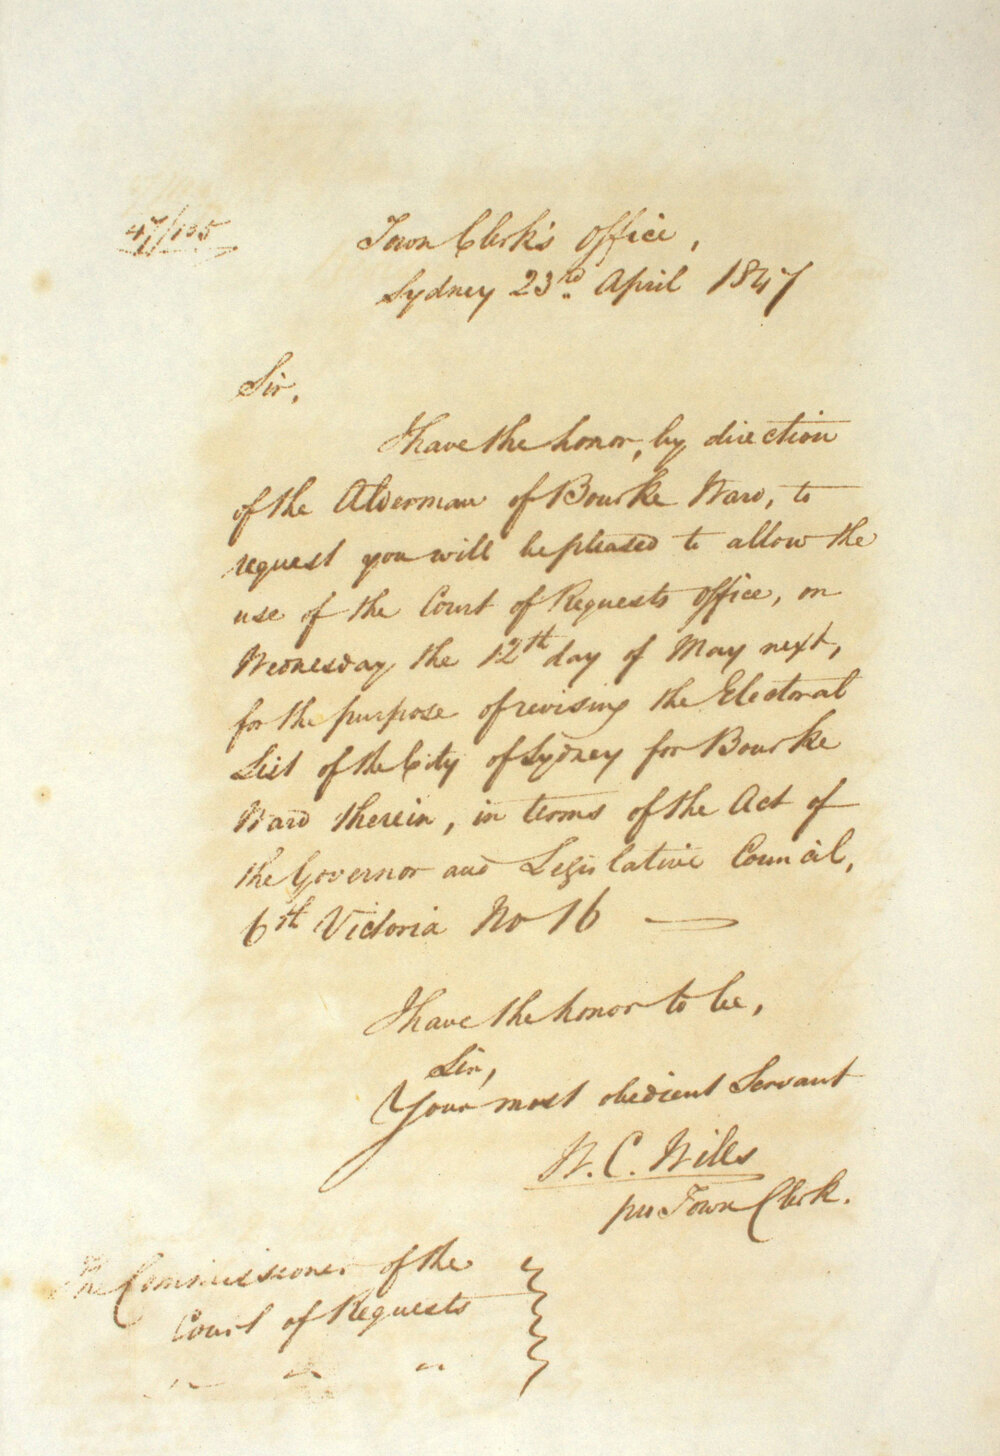 47/105
Town Clerk's Office,
Sydney 23rd. April 1847
Sir,
I have the honor, by direction
of the Alderman of Bourke Ward, to
request you will be pleased to allow the
use of the Court of Requests Office, on
Wednesday the 12th day of May next,
for the purpose of revising the Electoral
List of the City of Sydney for Bourke
Ward therein, in terms of the Act of
the Governor and Legislative Council,
6th Victoria No 16 —
I have the honor to be,
Sir,
Your most obedient Servant
W. C. Wills
pro Town Clerk.
The Commissioner of the
Court of Requests
" " "